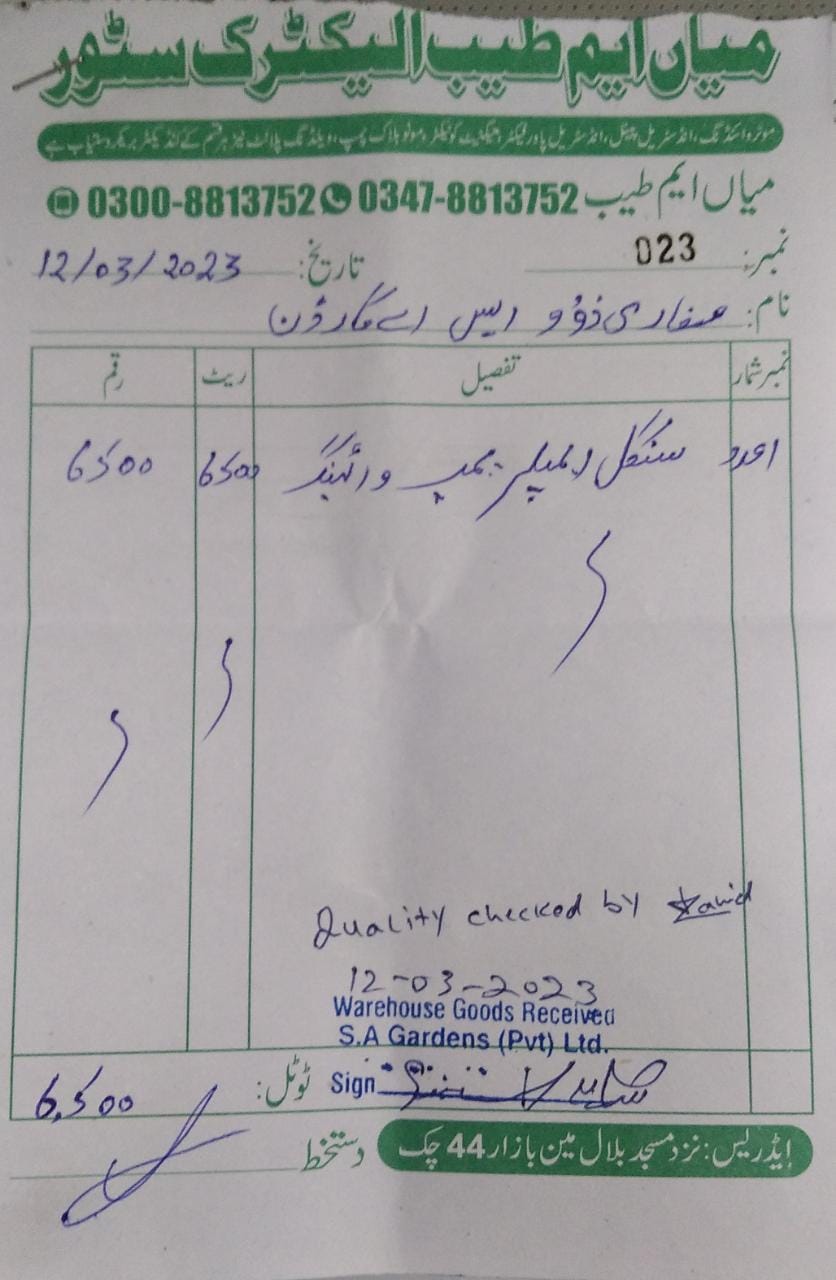 میاں ایم طیب الیکٹرک سٹور
موٹر وائنڈنگ، انڈسٹریل پینل، انڈسٹریل پاور فیکٹر، میگنیٹ کونٹیکٹر، مونو بلاک پمپ، ویلڈنگ پلانٹ نیز ہر قسم کے لنڈیکٹر بریکر دستیاب ہے
میاں ایم طیب 0347-8813752 0300-8813752
نمبر: 023 تاریخ: 12/03/2023
نام: سفاری زوو ایس اے گارڈن
نمبر شمار تفصیل ریٹ رقم
1عدد سنگل امپلر پمپ وائینڈنگ 6500 6500
Quality checked by
12-03-2023
Warehouse Goods Received
S.A Gardens (Pvt) Ltd.
Sign
ٹوٹل: 6,500
دستخط
ایڈریس: نزد مسجد بلال مین بازار 44 چک